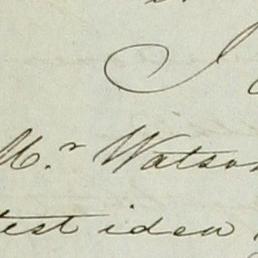 I
Mr Watson
test idea